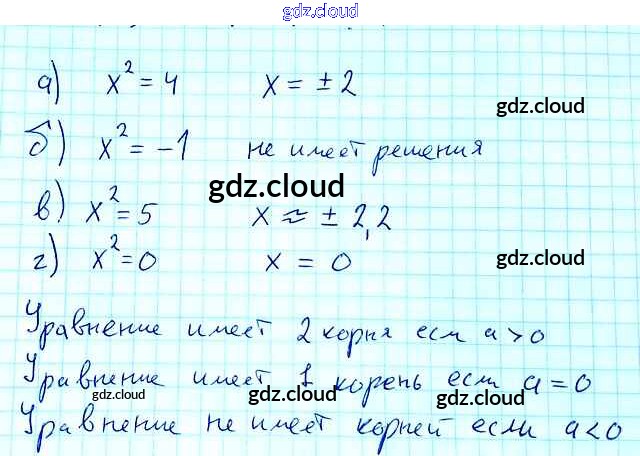 gdz.cloud
а) x² = 4 x = ± 2
gdz.cloud
б) x² = -1 не имеет решения
gdz.cloud
в) x² = 5 x ≈ ± 2,2
г) x² = 0 x = 0
gdz.cloud
Уравнение имеет 2 корня есм a > 0
Уравнение имеет 1 корень если a = 0
gdz.cloud gdz.cloud gdz.cloud
Уравнение не имеет корней если a < 0